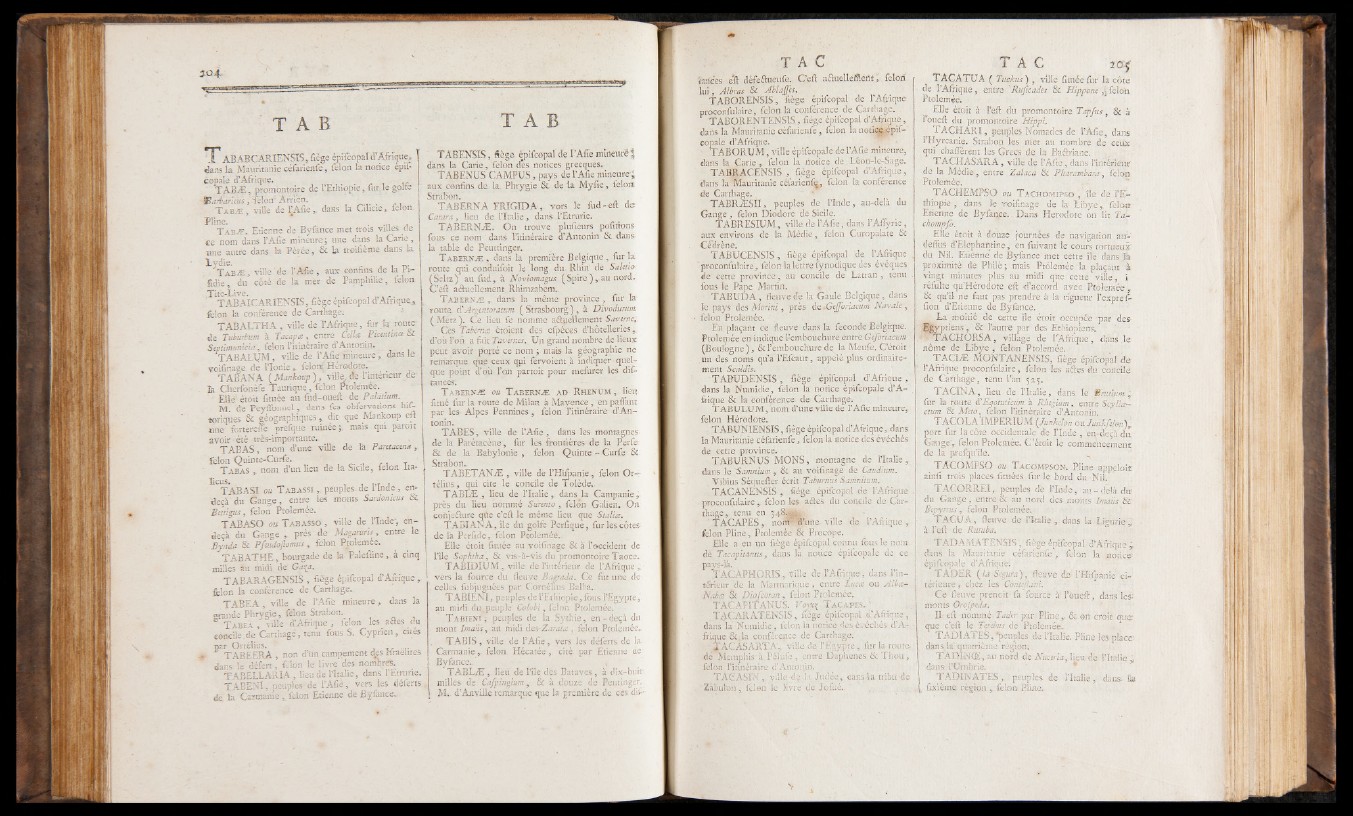 204
TAB
TAB
TABABCARIENSIS, siége épiscopal d'Afrique,
dans la Mauritanie césarienſe, ſelon la notice épiſ-
copale d'Afrique.
TABÆ, promontoire de l'Ethiopie, ſur le golfe
Barbaricus, ſelon Arrien.
TABÆ, ville de l'Aſie, dans la Cilicie, ſelon
Pline.
TABÆ. Etienne de Byſance met trois villes de
ce nom dans l'Aſie mineure; une dans la Carie,
une autre dans la Pérée, & la troiſième dans la
Lydie.
TABÆ, ville de l'Aſie, aux confins de la Pi-
ſidie, du côté de la mer de Pamphilie, ſelon
Tite-Live.
TABAICARIENSIS, ſiége épiſcopal d'Afrique,
ſelon la conférence de Carthage.
TABALTHA, ville de l'Afrique, ſur la route
de Tuburbum à Tacapæ, entre Cellæ Picentinæ &
Septimunicia, ſelon l'itinéraire d'Antonin.
TABALUM, ville de l'Aſie mineure, dans le
voiſinage de l'Ionie, ſelon Hérodote.
TABANA (Mankoup), ville de l'intérieur de
la Cherſonèſe Taurique, ſelon Ptolemée.
Elle étoit ſituée au ſud-oueſt de Palatium.
M. de Peyſſonnel, dans ſes obſervations hiſ-
toriques & géographiques, dit que Mankoup eſt
une forterеſſe preſque ruinée; mais qui paroît
avoir été très-importante.
TABAS, nom d'une ville de la Parétacène,
ſelon Quinte-Curſe.
TABAS, nom d'un lieu de la Sicile, ſelon Ita-
licus.
TABASI ou TABASSI, peuples de l'Inde, en-
deçà du Gange, entre les monts Sardonicus &
Bettigus, ſelon Ptolemée.
TABASO ou TABASSO, ville de l'Inde, en-
deçà du Gange, près de Magauris, entre le
Bynda & Pſeudoſtomus, ſelon Ptolemée.
TABATHE, bourgade de la Paleſtine, à cinq
milles au midi de Gaza.
TABARAGENSIS, ſiége épiſcopal d'Afrique,
ſelon la conférence de Carthage.
TABEA, ville de l'Aſie mineure, dans la
grande Phrygie, ſelon Strabon.
TABEA, ville d'Afrique, ſelon les actes du
concile de Carthage, tenu ſous S. Cyprien, cités
par Ortélius.
TABEERA, nom d'un campement des Iſraélites
dans le déſert, ſelon le livre des nombres.
TABELLARIA, lieu de l'Italie, dans l'Etrurie.
TABENI, peuples de l'Aſie, vers les déſerts
de la Carmanie, ſelon Etienne de Byſance.
TABENSIS, ſiége épiſcopal de l'Aſie mineure,
dans la Carie, ſelon des notices grecques.
TABENUS CAMPUS, pays de l'Aſie mineure,
aux confins de la Phrygie & de la Myſie, ſelon
Strabon.
TABERNA FRIGIDA, vers le ſud-eſt de
lieu de l'Italie, dans l'Etrurie.
TABERNÆ. On trouve pluſieurs poſitions
ſous ce nom dans l'itinéraire d'Antonin & dans
la table de Peutinger.
TABERNÆ, dans la première Belgique, ſur la
route qui conduiſoit le long du Rhin de Saletio
(Seltz) au ſud, à Noviomagus (Spire), au nord.
C'eſt actuellement Rhimzabern.
TABERNÆ, dans la même province, ſur la
route d'Argentoratum (Strasbourg), à Divodurum
(Metz). Ce lieu ſe nomme actuellement Saverne.
Ces Tabernæ étoient des eſpèces d'hôtelleries,
d'où l'on a fait Tavernes. Un grand nombre de lieux
peut avoir porté ce nom; mais la géographie ne
remarque que ceux qui ſervoient à indiquer quel-
que point d'où l'on partoit pour meſurer les diſ-
tances.
TABERNÆ ou TABERNÆ AD RHENUM, lieu
ſitué ſur la route de Milan à Mayence, en paſſant
par les Alpes Pennines, ſelon l'itinéraire d'An-
tonin.
TABES, ville de l'Aſie, dans les montagnes
de la Parétacène, ſur les frontières de la Perſe
& de la Babylonie, ſelon Quinte-Curſe &
Strabon.
TABETANÆ, ville de l'Hiſpanie, ſelon Or-
télius, qui cite le concile de Tolède.
TABIÆ, lieu de l'Italie, dans la Campanie,
près du lieu nommé Surento, ſelon Galien. On
conjecture que c'eſt le même lieu que Stabiæ.
TABIANA, île du golfe Perſique, ſur les côtes
de la Perſide, ſelon Ptolemée.
Elle étoit ſituée au voiſinage & à l'occident de
l'île Sophtha, & vis-à-vis du promontoire Taoce.
TABIDIUM, ville de l'intérieur de l'Afrique,
vers la ſource du fleuve Bagrada. Ce fut une de
celles ſubjuguées par Cornélius Balba.
TABIENI, peuples de l'Ethiopie, ſous l'Egypte,
au midi du peuple Colobi, ſelon Ptolemée.
TABIENI, peuples de la Scythie, en-deçà du
mont Imaüs, au midi des Zaratæ, ſelon Ptolemée.
TABIS, ville de l'Aſie, vers les déſerts de la
Carmanie, ſelon Hécatée, cité par Etienne de
Byſance.
TABLÆ, lieu de l'île des Bataves, à dix-huit
milles de Caſpingium, & à douze de Peutinger.
M. d'Anville remarque que la première de ces diſ-
TAC
TAC
205
tances eſt défectueuſe. C'eſt actuellement, ſelon
lui, Alblas & Ablaſſes.
TABORENSIS, ſiége épiſcopal de l'Afrique
proconſulaire, ſelon la conférence de Carthage.
TABORENTENSIS, ſiége épiſcopal d'Afrique,
dans la Mauritanie céſarienſe, ſelon la notice épiſ-
copale d'Afrique.
TABORUM, ville épiſcopale de l'Aſie mineure,
dans la Carie, ſelon la notice de Léon-le-Sage.
TABRACENSIS, ſiége épiſcopal d'Afrique,
dans la Mauritanie céſarienſe, ſelon la conférence
de Carthage.
TABRÆSII, peuples de l'Inde, au-delà du
Gange, ſelon Diodore de Sicile.
TABRESIUM, ville de l'Aſie, dans l'Aſſyrie,
aux environs de la Médie, ſelon Curopalate &
Cédrène.
TABUCENSIS, ſiége épiſcopal de l'Afrique
proconſulaire, ſelon la lettre ſynodique des évêques
de cette province, au concile de Latran, tenu
ſous le Pape Martin.
TABUDA, fleuve de la Gaule Belgique, dans
le pays des Morini, près de Geſſoriacum Navale,
ſelon Ptolemée.
En plaçant ce fleuve dans la ſeconde Belgique,
Ptolemée en indique l'embouchure entre Geſoriacum
(Boulogne), & l'embouchure de la Meuſe. C'étoit
un des noms qu'a l'Eſcaut, appelé plus ordinaire-
ment Scaldis.
TABUDENSIS, ſiége épiſcopal d'Afrique,
dans la Numidie, ſelon la notice épiſcopale d'A-
frique & la conférence de Carthage.
TABULUM, nom d'une ville de l'Aſie mineure,
ſelon Hérodote.
TABUNIENSIS, ſiége épiſcopal d'Afrique, dans
la Mauritanie céſarienſe, ſelon la notice des évêchés
de cette province.
TABURNUS MONS, montagne de l'Italie,
dans le Samnium, & au voiſinage de Caudium.
Vibius Séqueſter écrit Taburnus Samnitum.
TACANENSIS, ſiége épiſcopal de l'Afrique
proconſulaire, ſelon les actes du concile de Car-
thage, tenu en 348.
TACAPES, nom d'une ville de l'Afrique,
ſelon Pline, Ptolemée & Procope.
Elle a eu un ſiége épiſcopal connu ſous le nom
de Tacapitanus, dans la notice épiſcopale de ce
pays-là.
TACAPHORIS, ville de l'Afrique, dans l'in-
térieur de la Marmarique, entre Lucæ ou Alba-
Naba & Dioſcoron, ſelon Ptolemée.
TACAPITANUS. Voyez TACAPES.
TACARATENSIS, ſiége épiſcopal d'Afrique,
dans la Numidie, ſelon la notice des évêchés d'A-
frique & la conférence de Carthage.
TACASARTA, ville de l'Egypte, ſur la route
de Memphis à Péluſe, entre Daphones & Thou,
ſelon l'itinéraire d'Antonin.
TACASIN, ville de la Judée, dans la tribu de
Zabulon, ſelon le livre de Joſué.
TACATUA (Tuckus), ville ſituée ſur la côte
de l'Afrique, entre Ruſicades & Hippone, ſelon
Ptolemée.
Elle étoit à l'eſt du promontoire Tapſus, & à
l'oueſt du promontoire Hippi.
TACHARI, peuples Nomades de l'Aſie, dans
l'Hyrcanie. Strabon les met au nombre de ceux
qui chaſſèrent les Grecs de la Bactriane.
TACHASARA, ville de l'Aſie, dans l'intérieur
de la Médie, entre Zalaca & Pharambara, ſelon
Ptolemée.
TACHEMPSO ou TACHOMIPSO, île de l'E-
thiopie, dans le voiſinage de la Libye, ſelon
Etienne de Byſance. Dans Hérodote on lit Ta-
chompſo.
Elle étoit à douze journées de navigation au-
deſſus d'Elephantine, en ſuivant le cours tortueux
du Nil. Etienne de Byſance met cette île dans la
proximité de Philé; mais Ptolemée la plaçant à
vingt minutes plus au midi que cette ville, il
réſulte qu'Hérodote eſt d'accord avec Ptolemée,
& qu'il ne faut pas prendre à la rigueur l'expreſ-
ſion d'Etienne de Byſance.
La moitié de cette île étoit occupée par des
Egyptiens, & l'autre par des Ethiopiens.
TACHORSA, village de l'Afrique, dans le
nôme de Libye, ſelon Ptolemée.
TACIÆ MONTANENSIS, ſiége épiſcopal de
l'Afrique proconſulaire, ſelon les actes du concile
de Carthage, tenu l'an 525.
TACINA, lieu de l'Italie, dans le Brutium,
ſur la route d'Equotuticum à Rhegium, entre Scylla-
cium & Meto, ſelon l'itinéraire d'Antonin.
TACOLA IMPERIUM (Junkſelon ou Junkſelon),
port ſur la côte occidentale de l'Inde, en-deçà du
Gange, ſelon Ptolemée. C'étoit le commencement
de la preſqu'île.
TACOMPSO ou TACOMPSON. Pline appeloit
ainſi trois places ſituées ſur le bord du Nil.
TACORREI, peuples de l'Inde, au-delà du
du Gange, entre & au nord des monts Imaus &
Bepyrrus, ſelon Ptolemée.
TACUA, fleuve de l'Italie, dans la Ligurie,
à l'eſt de Rutuba.
TADAMATENSIS, ſiége épiſcopal d'Afrique,
dans la Mauritanie céſarienſe, ſelon la notice
épiſcopale d'Afrique.
TADER (la Segura), fleuve de l'Hiſpanie ci-
térieure, chez les Conteſtani.
Ce fleuve prenoit ſa ſource à l'oueſt, dans les
monts Oroſpeda.
Il eſt nommé Tader par Pline, & on croit que
que c'eſt le Terebus de Ptolemée.
TADIATES, peuples de l'Italie. Pline les place
dans la quatrième région.
TADINŒ, au nord de Nuceria, lieu de l'Italie,
dans l'Umbrie.
TADINATES, peuples de l'Italie, dans la
ſixième région, ſelon Pline.